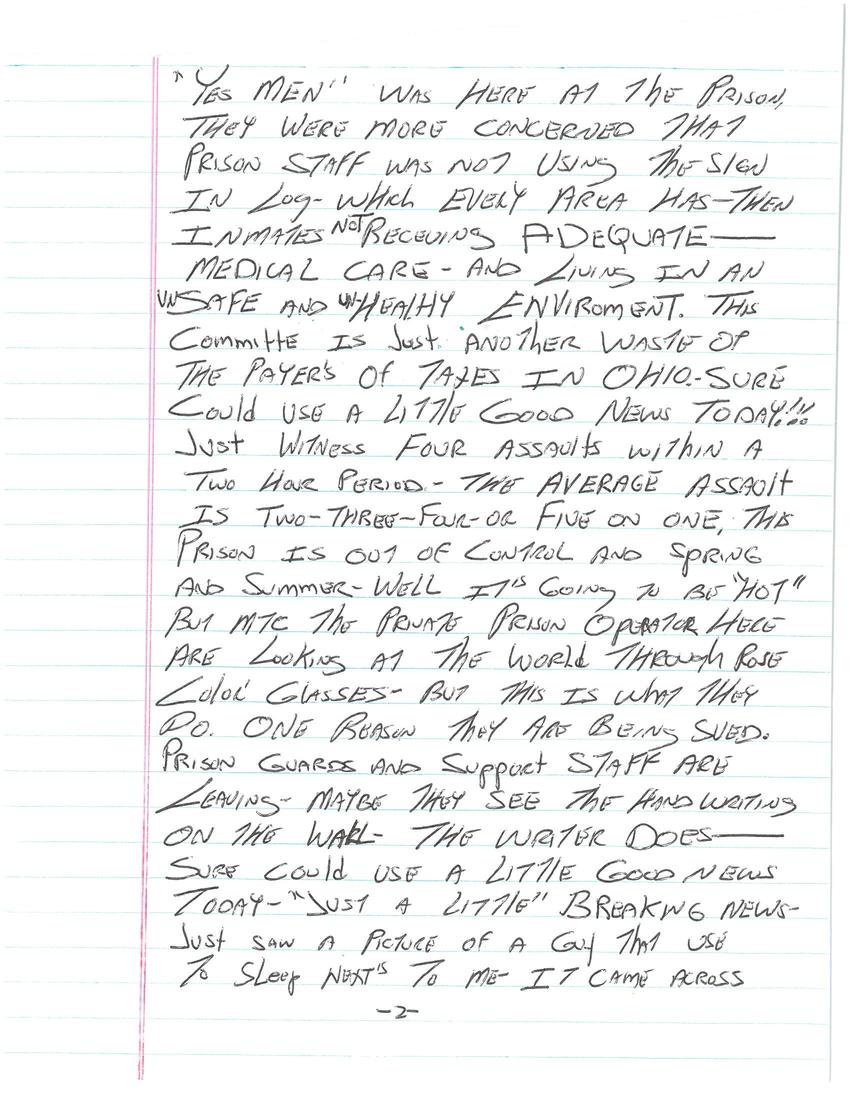 "YES MEN" WAS HERE AT THE PRISON,
THEY WERE MORE CONCERNED THAT
PRISON STAFF WAS NOT USING THE SIGN
IN LOG- WHICH EVERY AREA HAS-THEN
INMATES NOT RECEVING ADEQUATE—
MEDICAL CARE - AND LIVING IN AN
UNSAFE AND UN-HEALHY ENVIROMENT. THIS
COMMITTE IS JUST ANOTHER WASTE OF
THE PAYER'S OF TAXES IN OHIO.-SURE
COULD USE A LITTLE GOOD NEWS TODAY!!!
JUST WITNESS FOUR ASSAULTS WITHIN A
TWO HOUR PERIOD.- THE AVERAGE ASSAULT
IS TWO-THREE-FOUR-OR FIVE ON ONE, THIS
PRISON IS OUT OF CONTROL AND SPRING
AND SUMMER- WELL IT'S GOING TO BE "HOT"
BUT MTC THE PRIVATE PRISON OPERATOR HERE
ARE LOOKING AT THE WORLD THROUGH ROSE
COLOR' GLASSES- BUT THIS IS WHAT THEY
DO. ONE REASON THEY ARE BEING SUED.
PRISON GUARDS AND SUPPORT STAFF ARE
LEAVING- MAYBE THEY SEE THE HANDWRITING
ON THE WALL- THE WRITER DOES—
SURE COULD USE A LITTLE GOOD NEWS
TODAY-"JUST A LITTLE" BREAKING NEWS-
JUST SAW A PICTURE OF A GUY THAT USE
TO SLEEP NEXT'S TO ME- IT CAME ACROSS
-2-